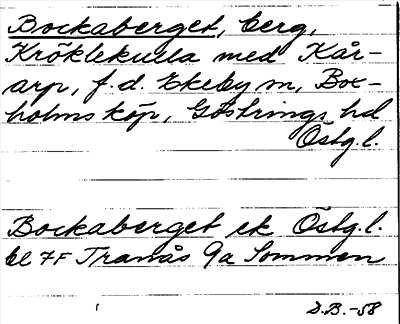 Bockaberget, berg,
Kröklekulla med Kår-
arp, f. d. Ekeby sn, Box-
holms köp, Göstrings hd
Östg. l.
Bockaberget ek Östg. l.
bl 7F Tranås 9a Sommen
D.B. -58